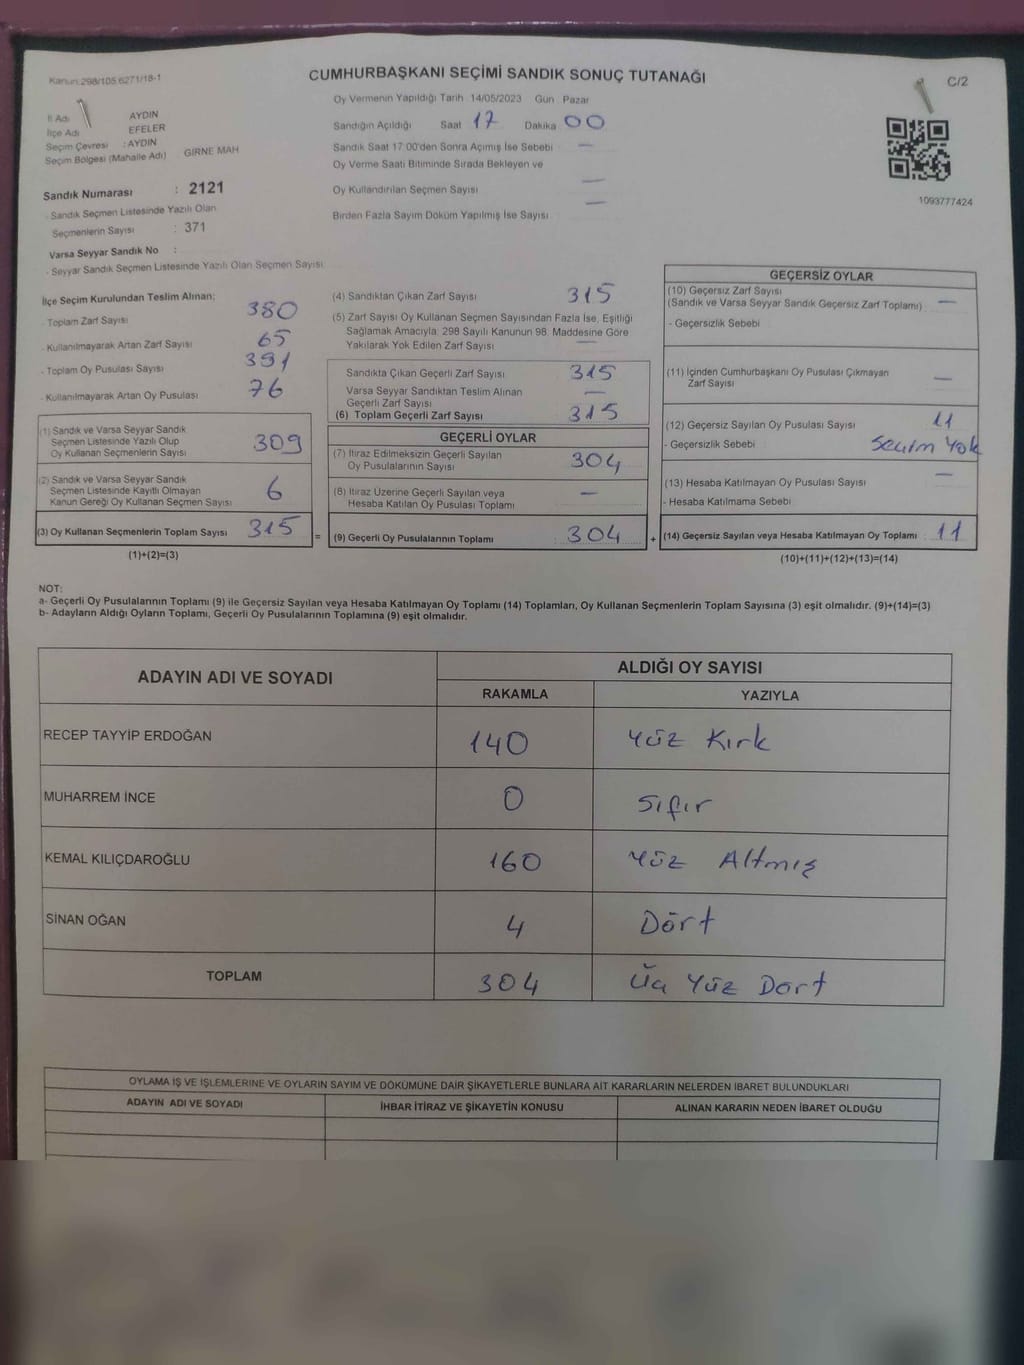 Kanun:298/105,6271/18-1
CUMHURBAŞKANI SEÇİMİ SANDIK SONUÇ TUTANAĞI
C/2
Oy Vermenin Yapıldığı Tarih 14/05/2023 Gün Pazar
İl Adı AYDIN
İlçe Adı EFELER
Seçim Çevresi : AYDIN
Seçim Bölgesi (Mahalle Adı) GİRNE MAH
Sandığın Açıldığı Saat 17 Dakika 00
Sandık Saat 17:00'den Sonra Açımış İse Sebebi —
Oy Verme Saati Bitiminde Sırada Bekleyen ve
Oy Kullandırılan Seçmen Sayısı —
Birden Fazla Sayım Döküm Yapılmış İse Sayısı —
1093777424
Sandık Numarası : 2121
- Sandık Seçmen Listesinde Yazılı Olan
Seçmenlerin Sayısı : 371
Varsa Seyyar Sandık No :
- Seyyar Sandık Seçmen Listesinde Yazılı Olan Seçmen Sayısı:
İlçe Seçim Kurulundan Teslim Alınan;
- Toplam Zarf Sayısı 380
- Kullanılmayarak Artan Zarf Sayısı 65
- Toplam Oy Pusulası Sayısı 391
- Kullanılmayarak Artan Oy Pusulası 76
(1) Sandık ve Varsa Seyyar Sandık
Seçmen Listesinde Yazılı Olup
Oy Kullanan Seçmenlerin Sayısı 309
(2) Sandık ve Varsa Seyyar Sandık
Seçmen Listesinde Kayıtlı Olmayan
Kanun Gereği Oy Kullanan Seçmen Sayısı 6
(3) Oy Kullanan Seçmenlerin Toplam Sayısı 315
(1)+(2)=(3)
(4) Sandıktan Çıkan Zarf Sayısı 315
(5) Zarf Sayısı Oy Kullanan Seçmen Sayısından Fazla İse, Eşitliği
Sağlamak Amacıyla, 298 Sayılı Kanunun 98. Maddesine Göre
Yakılarak Yok Edilen Zarf Sayısı —
Sandıkta Çıkan Geçerli Zarf Sayısı 315
Varsa Seyyar Sandıktan Teslim Alınan —
Geçerli Zarf Sayısı
(6) Toplam Geçerli Zarf Sayısı 315
GEÇERLİ OYLAR
(7) İtiraz Edilmeksizin Geçerli Sayılan
Oy Pusulalarının Sayısı 304
(8) İtiraz Üzerine Geçerli Sayılan veya
Hesaba Katılan Oy Pusulası Toplamı —
= (9) Geçerli Oy Pusulalarının Toplamı : 304 +
GEÇERSİZ OYLAR
(10) Geçersiz Zarf Sayısı
(Sandık ve Varsa Seyyar Sandık Geçersiz Zarf Toplamı) —
- Geçersizlik Sebebi
(11) İçinden Cumhurbaşkanı Oy Pusulası Çıkmayan
Zarf Sayısı —
(12) Geçersiz Sayılan Oy Pusulası Sayısı 11
- Geçersizlik Sebebi : Seçim Yok
(13) Hesaba Katılmayan Oy Pusulası Sayısı —
- Hesaba Katılmama Sebebi
(14) Geçersiz Sayılan veya Hesaba Katılmayan Oy Toplamı : 11
(10)+(11)+(12)+(13)=(14)
NOT:
a- Geçerli Oy Pusulalarının Toplamı (9) ile Geçersiz Sayılan veya Hesaba Katılmayan Oy Toplamı (14) Toplamları, Oy Kullanan Seçmenlerin Toplam Sayısına (3) eşit olmalıdır. (9)+(14)=(3)
b- Adayların Aldığı Oyların Toplamı, Geçerli Oy Pusulalarının Toplamına (9) eşit olmalıdır.
ADAYIN ADI VE SOYADI
ALDIĞI OY SAYISI
RAKAMLA YAZIYLA
RECEP TAYYİP ERDOĞAN 140 Yüz Kırk
MUHARREM İNCE 0 Sıfır
KEMAL KILIÇDAROĞLU 160 Yüz Altmış
SİNAN OĞAN 4 Dört
TOPLAM 304 Üç Yüz Dört
OYLAMA İŞ VE İŞLEMLERİNE VE OYLARIN SAYIM VE DÖKÜMÜNE DAİR ŞİKAYETLERLE BUNLARA AİT KARARLARIN NELERDEN İBARET BULUNDUKLARI
ADAYIN ADI VE SOYADI İHBAR İTİRAZ VE ŞİKAYETİN KONUSU ALINAN KARARIN NEDEN İBARET OLDUĞU